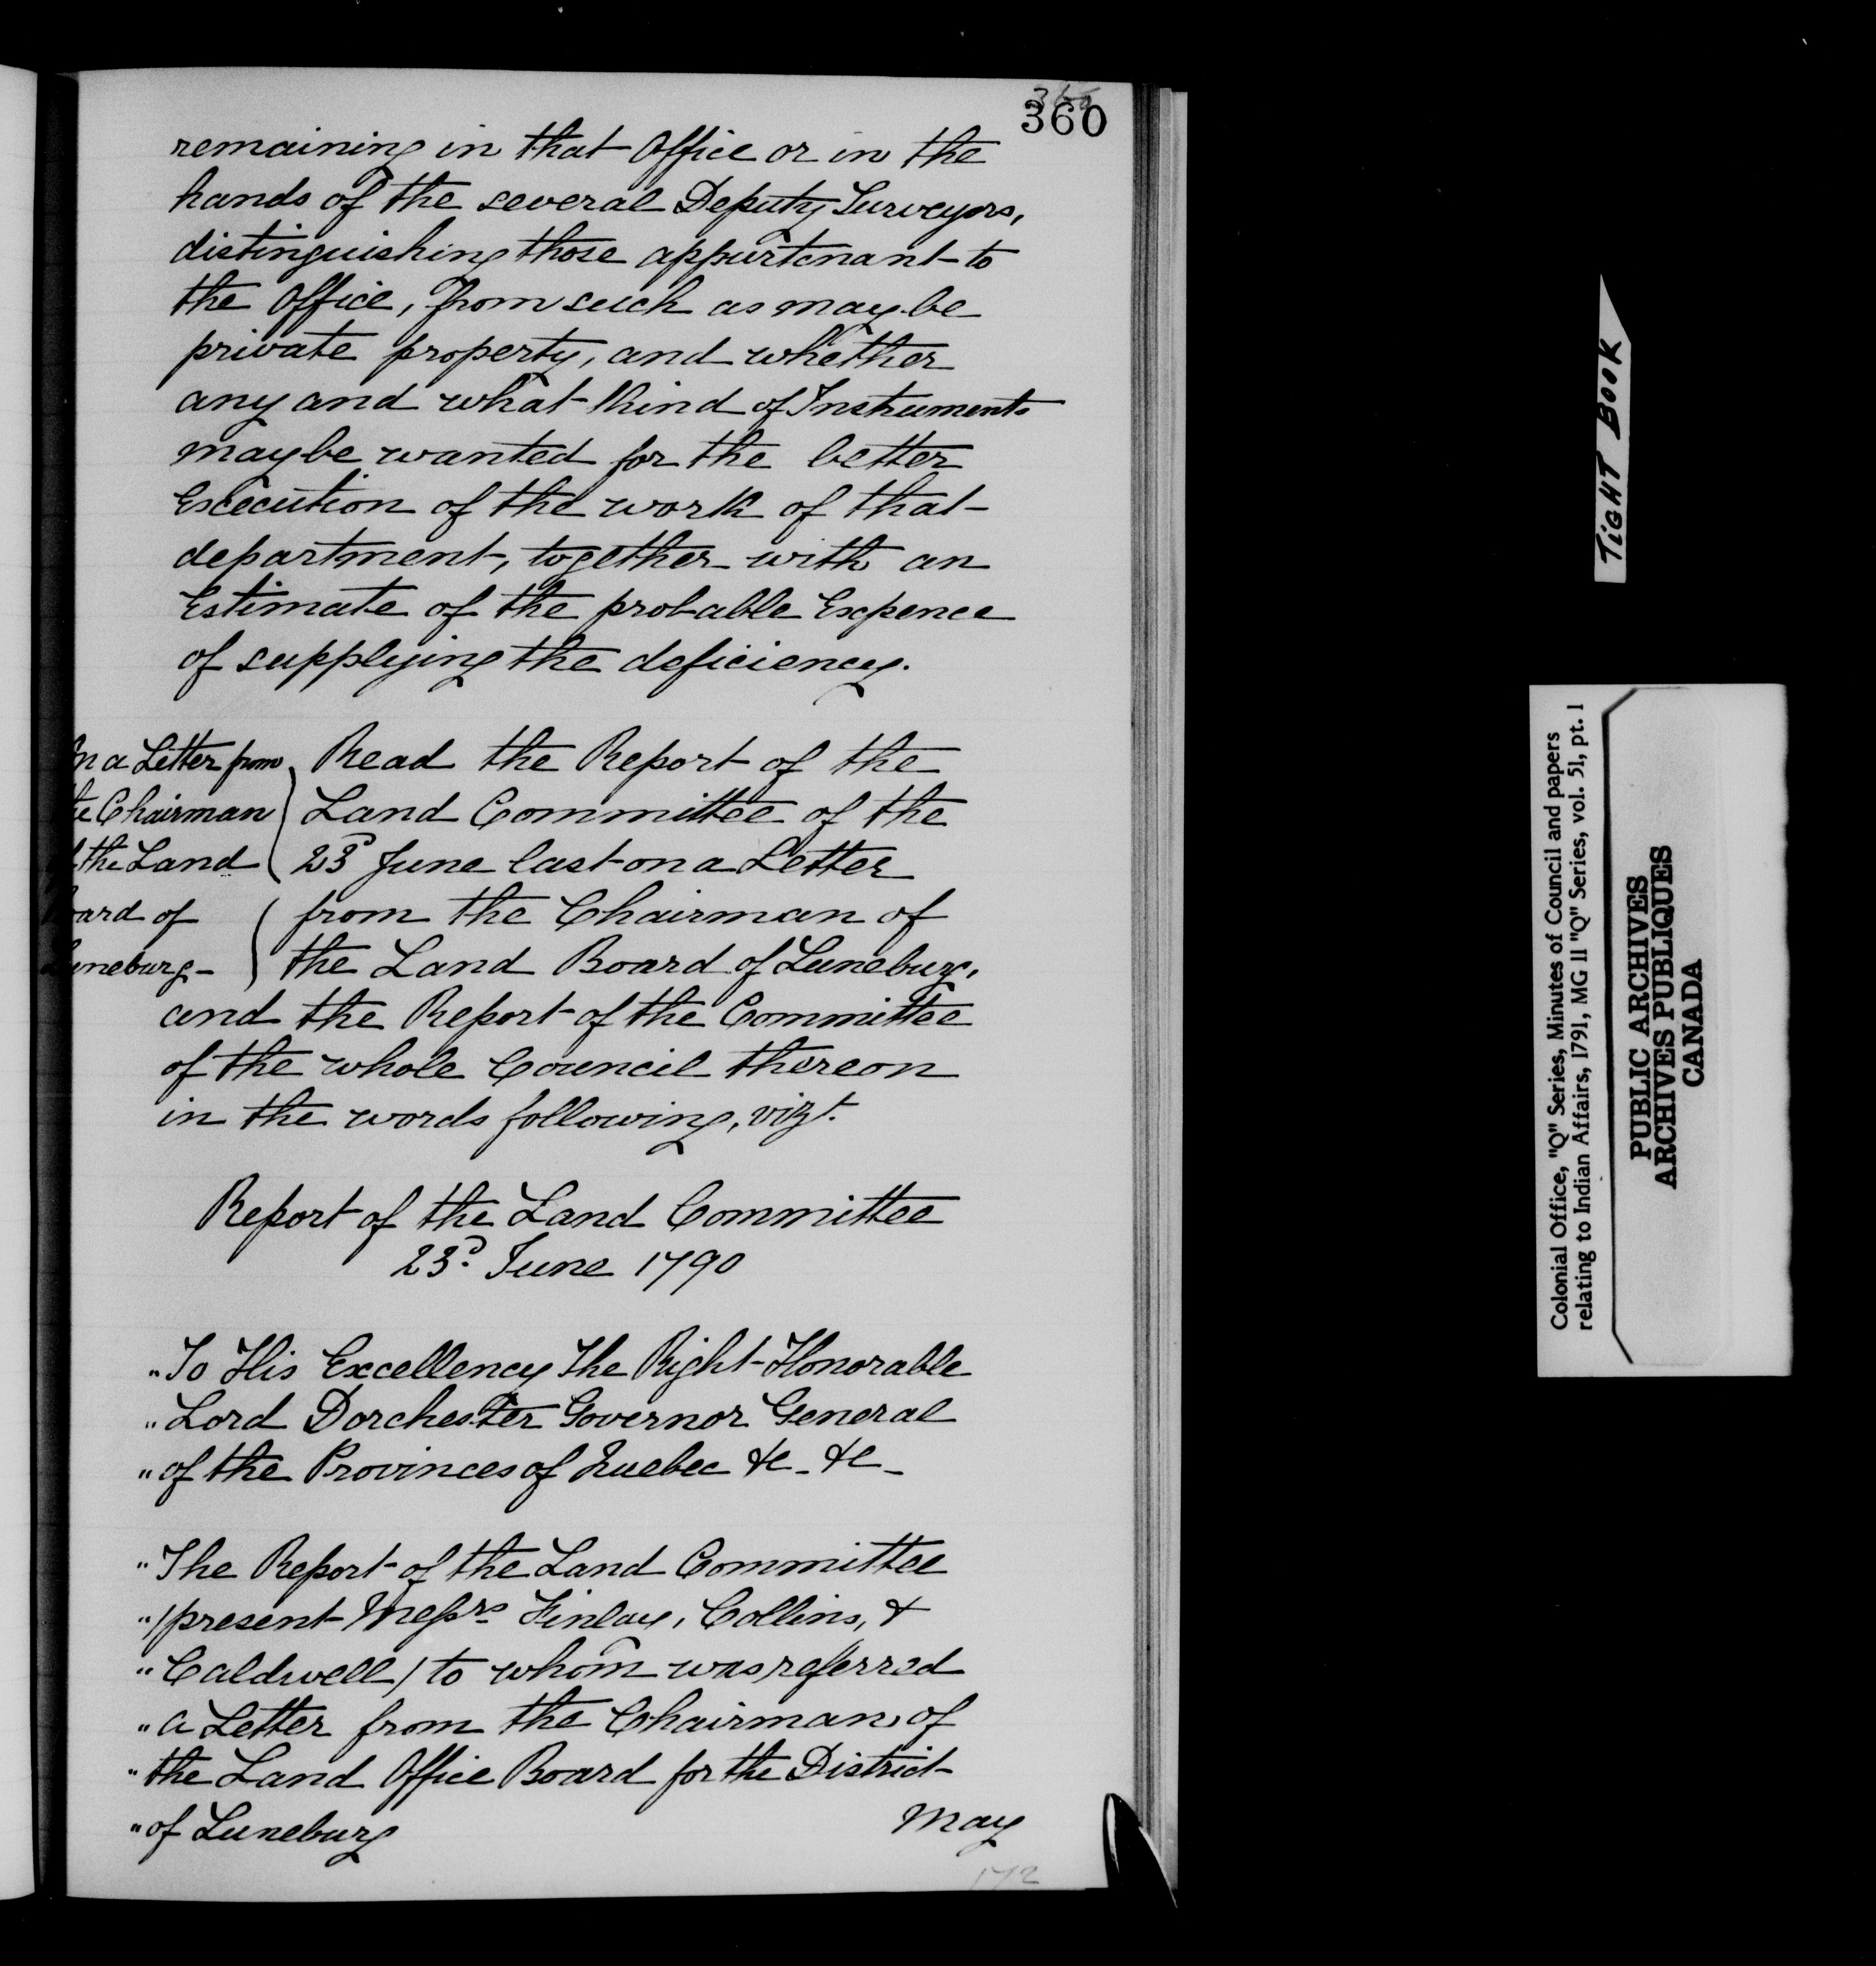 360
360
remaining in that Office or in the
hands of the several Deputy Surveyors,
distinguishing those appurtenant to
the Office, from such as may be
private property, and whether
any and what kind of Instruments
may be wanted for the better
Execution of the work of that
department, together with an
Estimate of the probable Expence
of supplying the deficiency.
On a Letter from
the Chairman
of the Land
Board of
Luneburg -
Read the Report of the
Land Committee of the
23d June last on a Letter
from the Chairman of
the Land Board of Luneburg,
and the Report of the Committee
of the whole Council thereon
in the words following, vizt.
Report of the Land Committee
23d. June 1790
"To His Excellency The Right Honorable
"Lord Dorchester Governor General
"of the Provinces of Quebec &c - &c -
"The Report of the Land Committee
"/present Messrs Finlay, Collins, &
"Caldwell/ to whom was referred
"a Letter from the Chairman of
"the Land Office Board for the District
"of Luneburg
May
172
TIGHT BOOK
Colonial Office, "Q" Series, Minutes of Council and papers
relating to Indian Affairs, 1791, MG 11 "Q" Series, vol. 51, pt. 1
PUBLIC ARCHIVES
ARCHIVES PUBLIQUES
CANADA